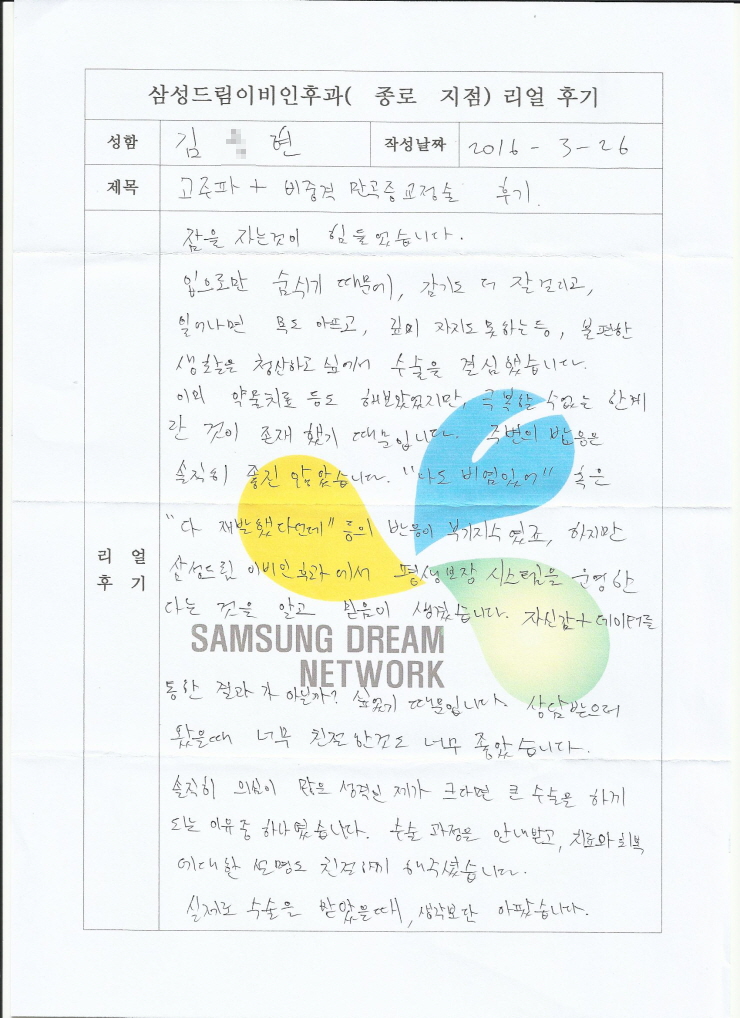 삼성드림이비인후과( 종로 지점) 리얼 후기
성함 김 현 작성날짜 2016-3-26
제목 고주파 + 비중격 만곡증교정술 후기.
리얼 후기
잠을 자는것이 힘들었습니다.
입으로만 숨쉬기 때문에, 감기도 더 잘걸리고,
일어나면 목도 아프고, 깊이 자지도못하는등, 불편한
생활을 청산하고 싶어서 수술을 결심했습니다.
이외 약물치료 등도 해보았었지만, 극복할 수없는 한계
란 것이 존재했기 때문입니다. 주변의 반응은
솔직히 좋진 않았습니다. "나도 비염있어" 혹은
"다 재발했다던데" 등의 반응이 부지기수 였죠, 하지만
삼성드림 이비인후과에서 평생보장 시스템을 운영한
다는 것을 알고 믿음이 생겼습니다. 자신감+데이터를
SAMSUNG DREAM
NETWORK
통한 결과가 아닐까? 싶었기 때문입니다. 상담받으러
왔을때 너무 친절한것도 너무 좋았습니다.
솔직히 의심이 많은 성격인 제가 크다면 큰 수술을 하게
되는 이유중 하나였습니다. 수술 과정을 안내받고, 치료와 회복
에대한 설명도 친절하게 해주셨습니다.
실제로 수술을 받았을때, 생각보단 아팠습니다.